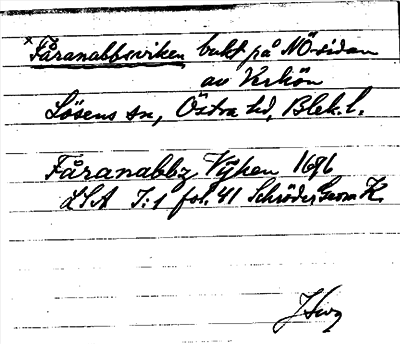 × Fåranabbsviken, bukt på NÖ-sidan
av Verkön
Lösens sn, Östra hd, Blek. l.
Fåranabbz Vyken 1686
LSA I:1 fol. 41 Schröder Geom K.